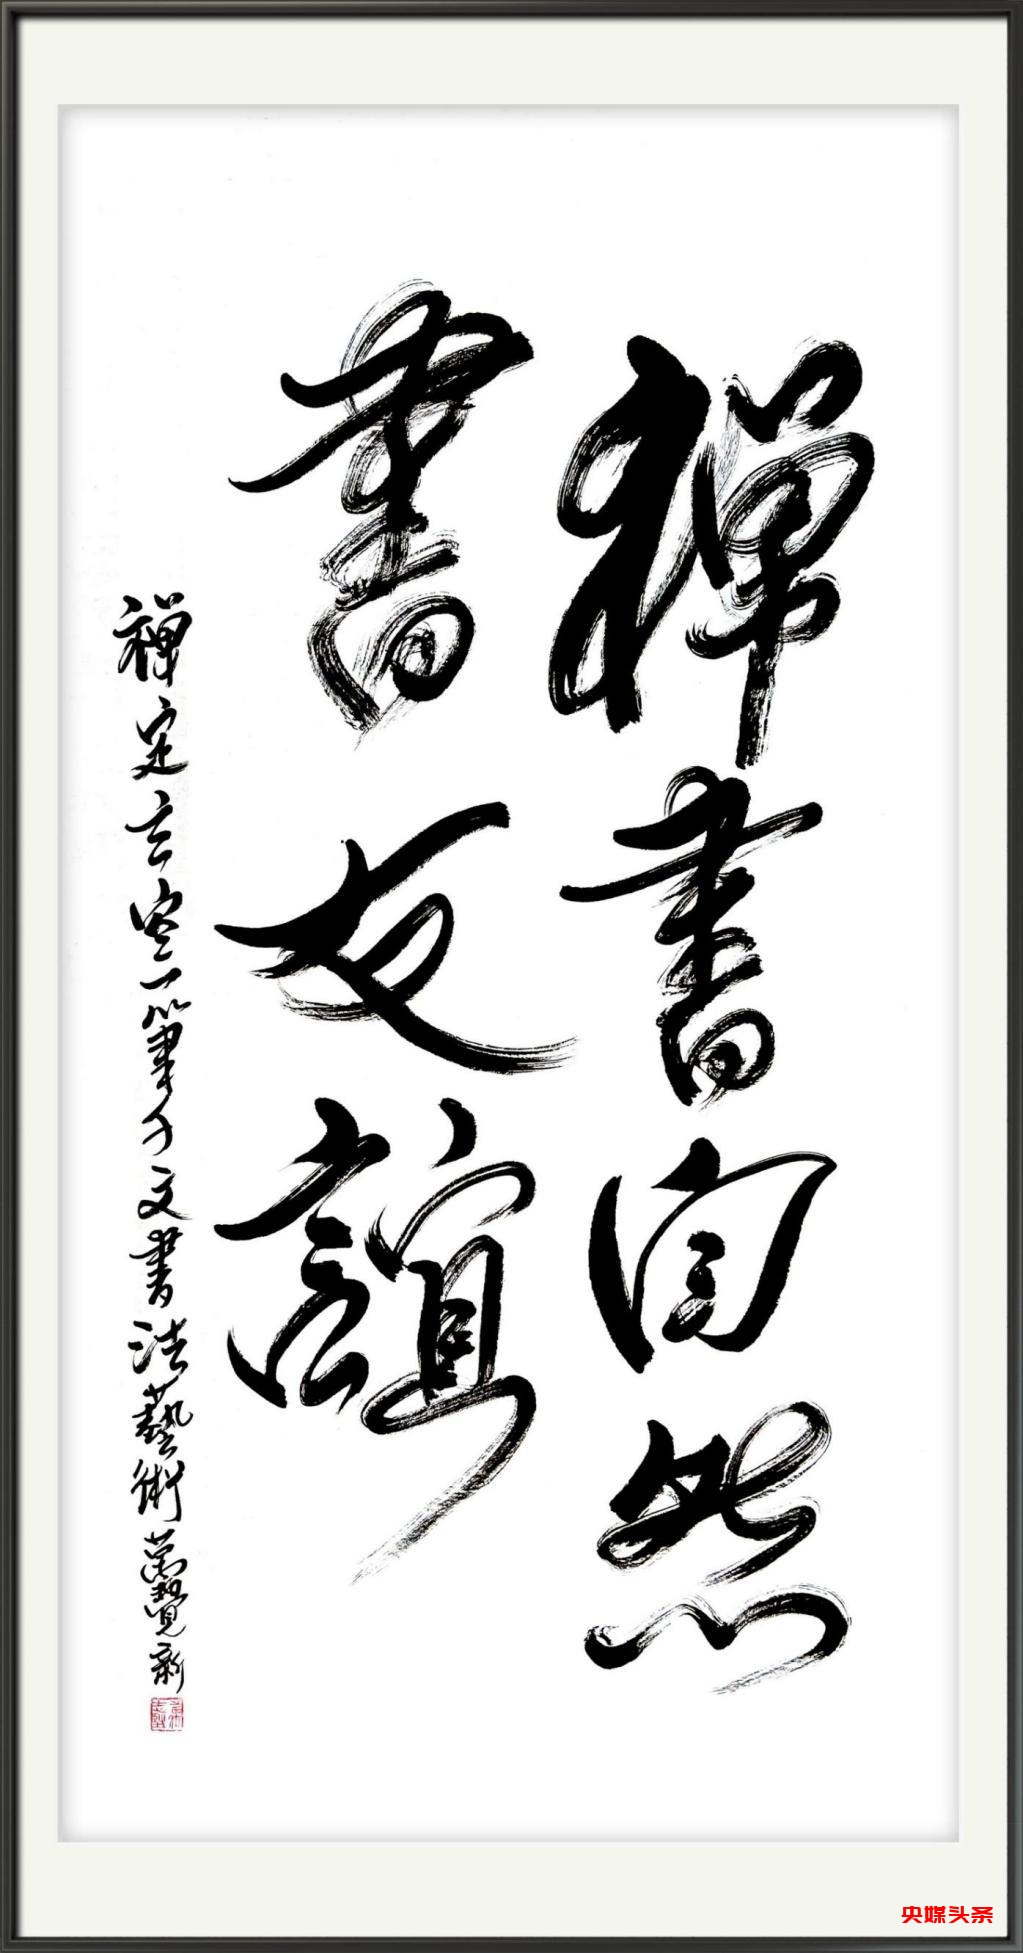 禪書自然
書友誼
禪定玄空一筆千文書法藝術萬覺新
央媒头条